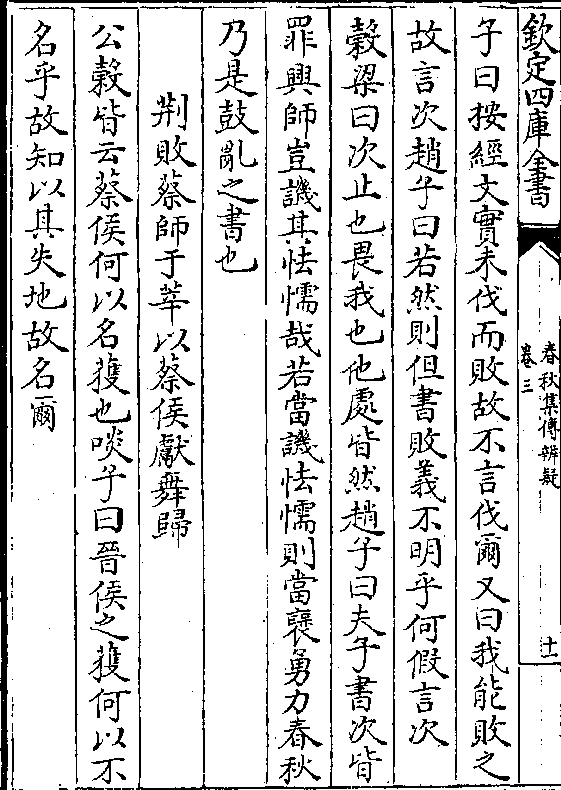 欽定四庫全書
春秋集傳辨疑
卷三
十一
子曰按經文實未伐而敗故不言伐爾又曰我能敗之
故言次趙子曰若然則但書敗義不明乎何假言次
穀梁曰次止也畏我也他處皆然趙子曰夫子書次皆
罪興師豈譏其怯懦哉若當譏怯懦則當襃勇力春秋
乃是鼓亂之書也
荆敗蔡師于莘以蔡侯獻舞歸
公穀皆云蔡侯何以名獲也啖子曰晉侯之獲何以不
名乎故知以其失地故名爾